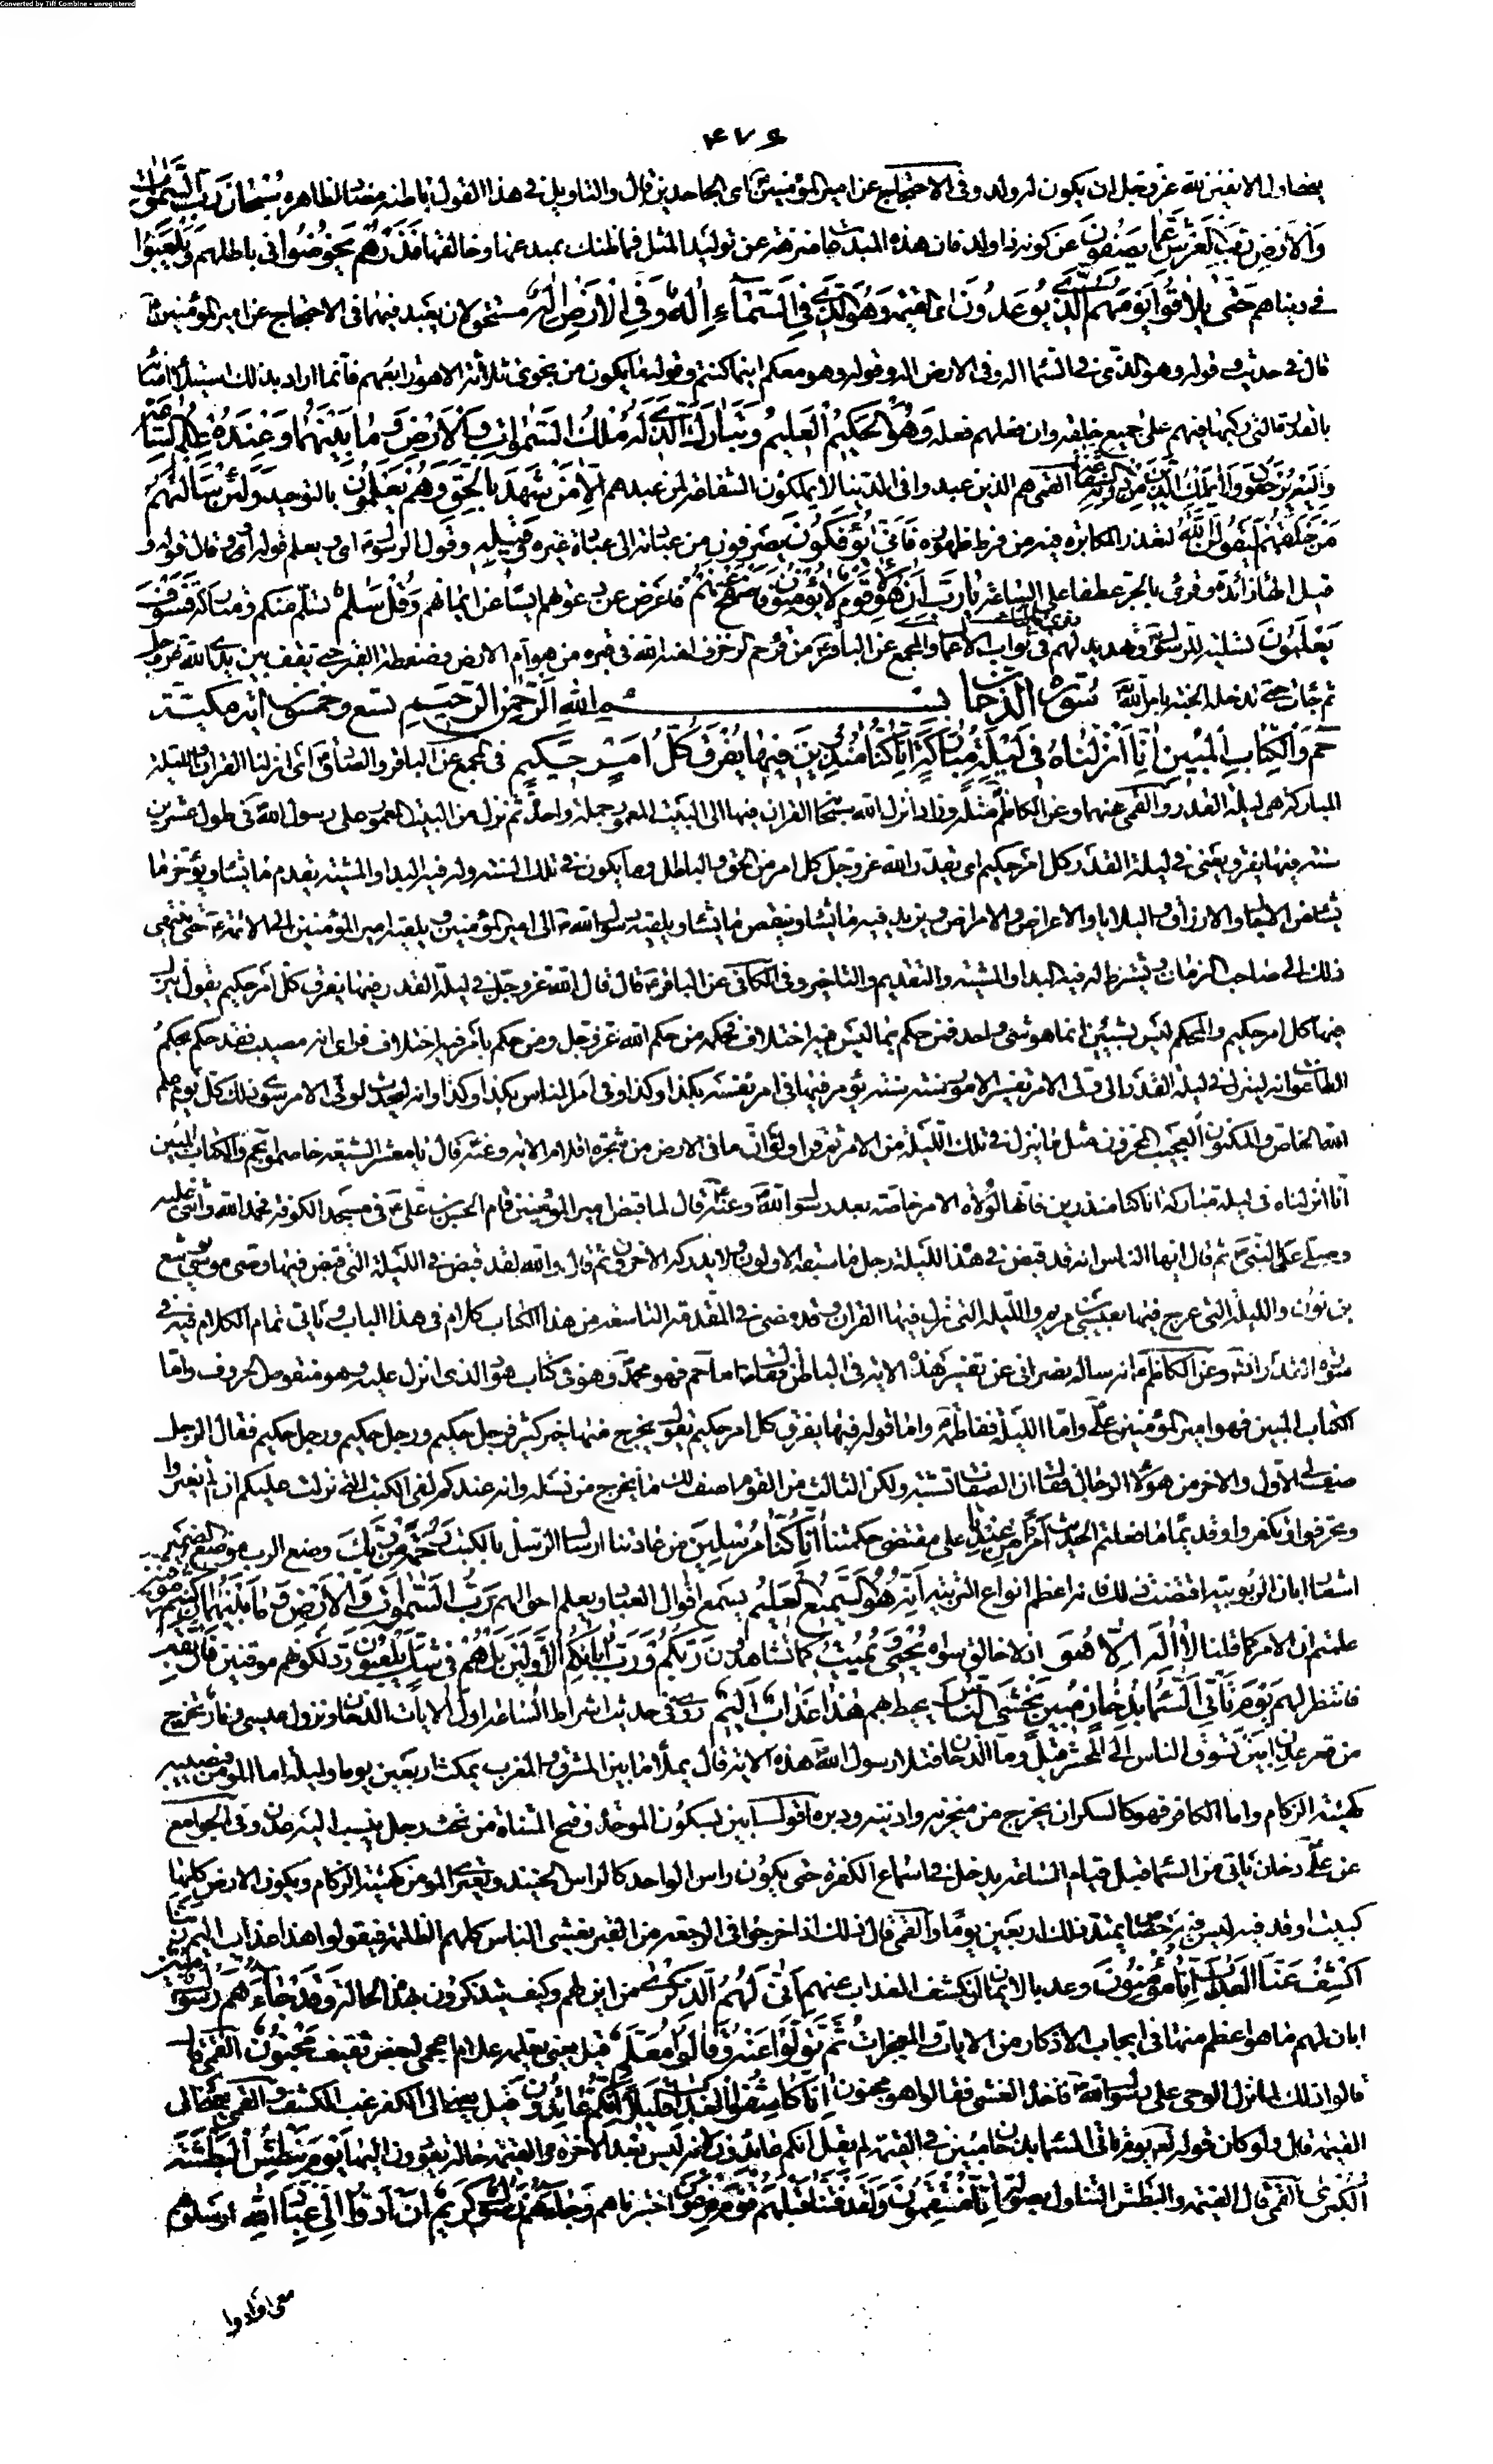 Converted by Tiff Combine - unregistered
۴۷۶
يعنى اول الانفين لله عز وجل ان يكون له ولد وفى الاحتجاج عن امير المؤمنين اى الجاحدين قال والتاويل فى هذا القول باطنه مضاد لظاهره سبحان رب السموات
والارض رب العرش عما يصفون عن كونه ذا ولد فان هذه المبدعات منزهة عن توليد المثل فما ظنك بمبدعها وخالقها فذرهم يخوضوا فى باطلهم ويلعبوا
فى دنياهم حتى يلاقوا يومهم الذى يوعدون اى القيمة وهو الذى فى السماء اله وفى الارض اله مستحق لان يعبد فيهما فى الاحتجاج عن امير المؤمنين
قال فى حديث وقوله وهو الذى فى السماء اله وفى الارض اله وقوله وهو معكم اينما كنتم وقوله ما يكون من نجوى ثلاثة الا هو رابعهم فانما اراد بذلك استيلاء امنائه
بالقدرة التى ركبها فيهم على جميع خلقه وان فعلهم فعله وهو الحكيم العليم وتبارك الذى له ملك السموات والارض وما بينهما وعنده علم الساعة
واليه ترجعون ولا يملك الذين يدعون من دونه الشفاعة القمى هم الذين عبدوا فى الدنيا لا يملكون الشفاعة لمن عبدهم الا من شهد بالحق وهم يعلمون بالتوحيد ولئن سالتهم
من خلقهم ليقولن الله لتعذر المكابرة فيه من فرط ظهوره فانى يؤفكون يصرفون من عبادته الى عبادة غيره وقيله وقول الرسول اى ويعلم قوله او وقال قوله و
قيل الهاء زائدة وقرئ بالجر عطفا على الساعة يا رب ان هؤلاء قوم لا يؤمنون فاصفح عنهم فاعرض عن دعوتهم ايسا عن ايمانهم وقل سلام تسلم منكم ومتاركة فسوف
يعلمون تسلية للرسول وتهديد لهم فى ثواب الاعمال والمجمع عن الباقر من قرء حم الزخرف امنه الله فى قبره من هوام الارض وضغطة القبر حتى يقف بين يدى الله عز وجل
ثم جاءت حتى تدخله الجنة بامر الله سورة الدخان بسم الله الرحمن الرحيم تسع وخمسون اية مكية
حم والكتاب المبين انا انزلناه فى ليلة مباركة انا كنا منذرين فيها يفرق كل امر حكيم فى المجمع عن الباقر والصادق اى انزلنا القران والليلة
المباركة هى ليلة القدر والقمى عنهما وعن الكاظم مثله وزاد انزل الله سبحانه القران فيها الى البيت المعمور جملة واحدة ثم نزل من البيت المعمور على رسول الله فى طول عشرين
سنة فيها يفرق يعنى فى ليلة القدر كل امر حكيم اى يقدر الله عز وجل كل امر من الحق والباطل وما يكون فى تلك السنة وله فيه البداء والمشية يقدم ما يشاء ويؤخر ما
يشاء من الاجال والارزاق والبلايا والاعراض والامراض ويزيد فيه ما يشاء وينقص ما يشاء ويلقيه رسول الله الى امير المؤمنين ويلقيه امير المؤمنين الى الائمة حتى ينتهى
ذلك الى صاحب الزمان ويشترط له فيه البداء والمشية والتقديم والتاخير وفى الكافى عن الباقر قال قال الله عز وجل فى ليلة القدر فيها يفرق كل امر حكيم يقول ينزل
فيها كل امر حكيم والمحكم ليس بشيئين انما هو شئ واحد فمن حكم بما ليس فيه اختلاف فحكمه من حكم الله عز وجل ومن حكم بامر فيه اختلاف فراى انه مصيب فقد حكم بحكم
الطاغوت انه لينزل فى ليلة القدر الى ولى الامر تفسير الامور سنة سنة يؤمر فيها فى امر نفسه بكذا وكذا وفى امر الناس بكذا وكذا وانه ليحدث لولى الامر سوى ذلك كل يوم علم
الله الخاص والمكنون العجيب المخزون مثل ما ينزل فى تلك الليلة من الامر ثم قرا ولو ان ما فى الارض من شجرة اقلام الاية وعنه قال يا معشر الشيعة خاصموا بحم والكتاب المبين
انا انزلناه فى ليلة مباركة انا كنا منذرين فانها لولاة الامر خاصة بعد رسول الله وعنه قال لما قبض امير المؤمنين قام الحسن بن على فى مسجد الكوفة فحمد الله واثنى عليه
وصلى على النبى ثم قال ايها الناس انه قد قبض فى هذه الليلة رجل ما سبقه الاولون ولا يدركه الاخرون ثم قال والله لقد قبض فى الليلة التى قبض فيها وصى موسى يوشع
بن نون والليلة التى عرج فيها بعيسى بن مريم والليلة التى نزل فيها القران وقد مضى فى المقدمة التاسعة من هذا الكتاب كلام فى هذا الباب وياتى تمام الكلام فيه فى
سورة القدر انشاء الله وعن الكاظم انه ساله نصرانى عن تفسير هذه الاية فى الباطن فقال اما حم فهو محمد وهو فى كتاب هود الذى انزل عليه وهو منقوص الحروف واما
الكتاب المبين فهو امير المؤمنين على واما الليلة ففاطمة واما قوله فيها يفرق كل امر حكيم يقول يخرج منها خير كثير فرجل حكيم ورجل حكيم ورجل حكيم فقال الرجل
صف لى الاول والاخر من هؤلاء الرجال فقال ان الصفات تشتبه ولكن الثالث من القوم اصف لك ما يخرج من نسله وانه عندكم لفى الكتب التى نزلت عليكم ان لم تغيروا
وتحرفوا وتكفروا وقديما ما فعلتم الحديث امرا من عندنا على مقتضى حكمتنا انا كنا مرسلين من عادتنا ارسال الرسل بالكتب رحمة من ربك وضع الرب موضع الضمير
اشعارا بان الربوبية اقتضت ذلك فانه اعظم انواع التربية انه هو السميع العليم يسمع اقوال العباد ويعلم احوالهم رب السموات والارض وما بينهما ان كنتم موقنين
علمتم ان الامر كما قلنا لا اله الا هو اذ لا خالق سواه يحيى ويميت كما تشاهدون ربكم ورب ابائكم الاولين بل هم فى شك يلعبون رد لكونهم موقنين فارتقب
فانتظر لهم يوم تاتى السماء بدخان مبين يغشى الناس يحيط بهم هذا عذاب اليم روى فى حديث اشراط الساعة اول الايات الدخان ونزول عيسى ونار تخرج
من قعر عدن ابين تسوق الناس الى المحشر قيل وما الدخان فتلا رسول الله هذه الاية قال يملأ ما بين المشرق والمغرب يمكث اربعين يوما وليلة اما المؤمن فيصيبه
كهيئة الزكام واما الكافر فهو كالسكران يخرج من منخريه واذنيه ودبره اقول ابين بسكون الموحدة وفتح المثناة من تحت رجل ينسب اليه عدن وفى الجوامع
عن على دخان ياتى من السماء قبل قيام الساعة يدخل فى اسماع الكفرة حتى يكون راس الواحد كالراس الحنيذ ويعترى المؤمن كهيئة الزكام ويكون الارض كلها
كبيت اوقد فيه ليس فيه خصاص يمتد ذلك اربعين يوما والقمى قال ذلك اذا خرجوا فى الرجعة من القبر يغشى الناس كلهم الظلمة فيقولوا هذا عذاب اليم ربنا
اكشف عنا العذاب انا مؤمنون وعد بالايمان ان كشف العذاب عنهم انى لهم الذكرى من اين لهم وكيف يتذكرون بهذه الحالة وقد جاءهم رسول مبين
ابان لهم ما هو اعظم منها فى ايجاب الاذكار من الايات والمعجزات ثم تولوا عنه وقالوا معلم قيل يعنى يعلمه غلام اعجمى لبعض ثقيف مجنون القمى قال
قالوا ذلك لما نزل الوحى على رسول الله فاخذه الغشى فقالوا هو مجنون انا كاشفوا العذاب قليلا انكم عائدون قيل يعنى الى الكفر غب الكشف والقمى يعنى الى
القيمة قال ولو كان قوله تعالى يوم تاتى السماء بدخان مبين فى القيمة لم يقل انكم عائدون لانه ليس بعد الاخرة والقيمة حالة يعودون اليها يوم نبطش البطشة
الكبرى القمى قال القيمة والبطش التناول بصولة انا منتقمون ولقد فتنا قبلهم قوم فرعون اختبرناهم وجاءهم رسول كريم ان ادوا الى عباد الله ارسلوهم
معى او ادوا